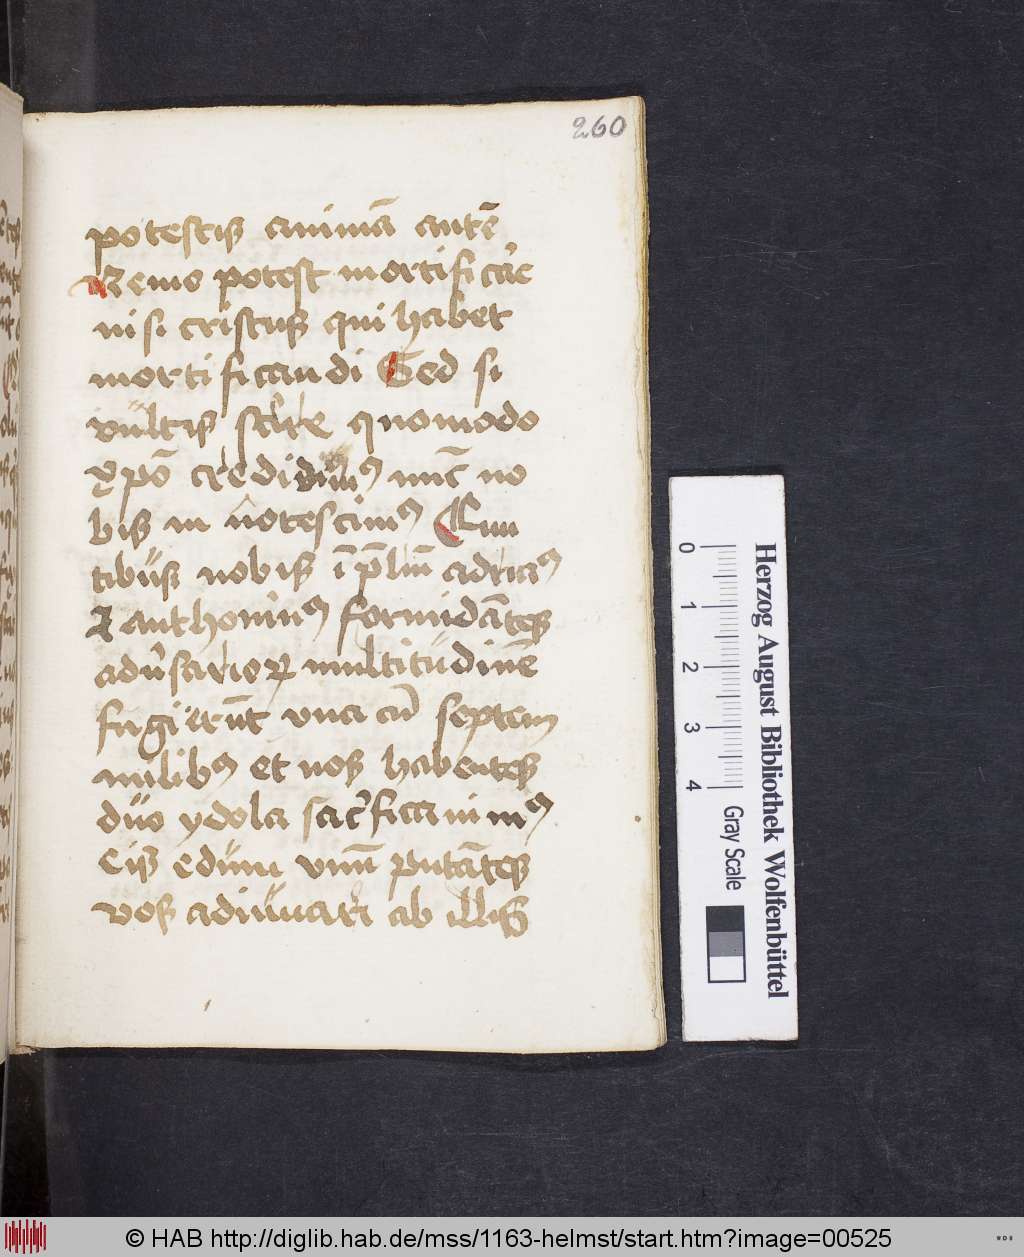 260
potestis animā autē
Nemo potest mortificare
nisi cristus qui habet
mortificandi Sed si
vultis scire quomodo
xp̄o credidimꝰ nūc no
bis innotescimꝰ Eun
tibus nobis ī p̄liū adriaꝰ
⁊ anthoninꝰ formidātes
adu̾sarioꝝ multitudinē
fugierūt vna cū septem
milibꝰ et nos habentes
duo ydola sac̾ficauimꝰ
eis Edum vnū putātes
nos adiuuari ab illis
0 1 2 3 4
Gray Scale
Herzog August Bibliothek Wolfenbüttel
© HAB http://diglib.hab.de/mss/1163-helmst/start.htm?image=00525